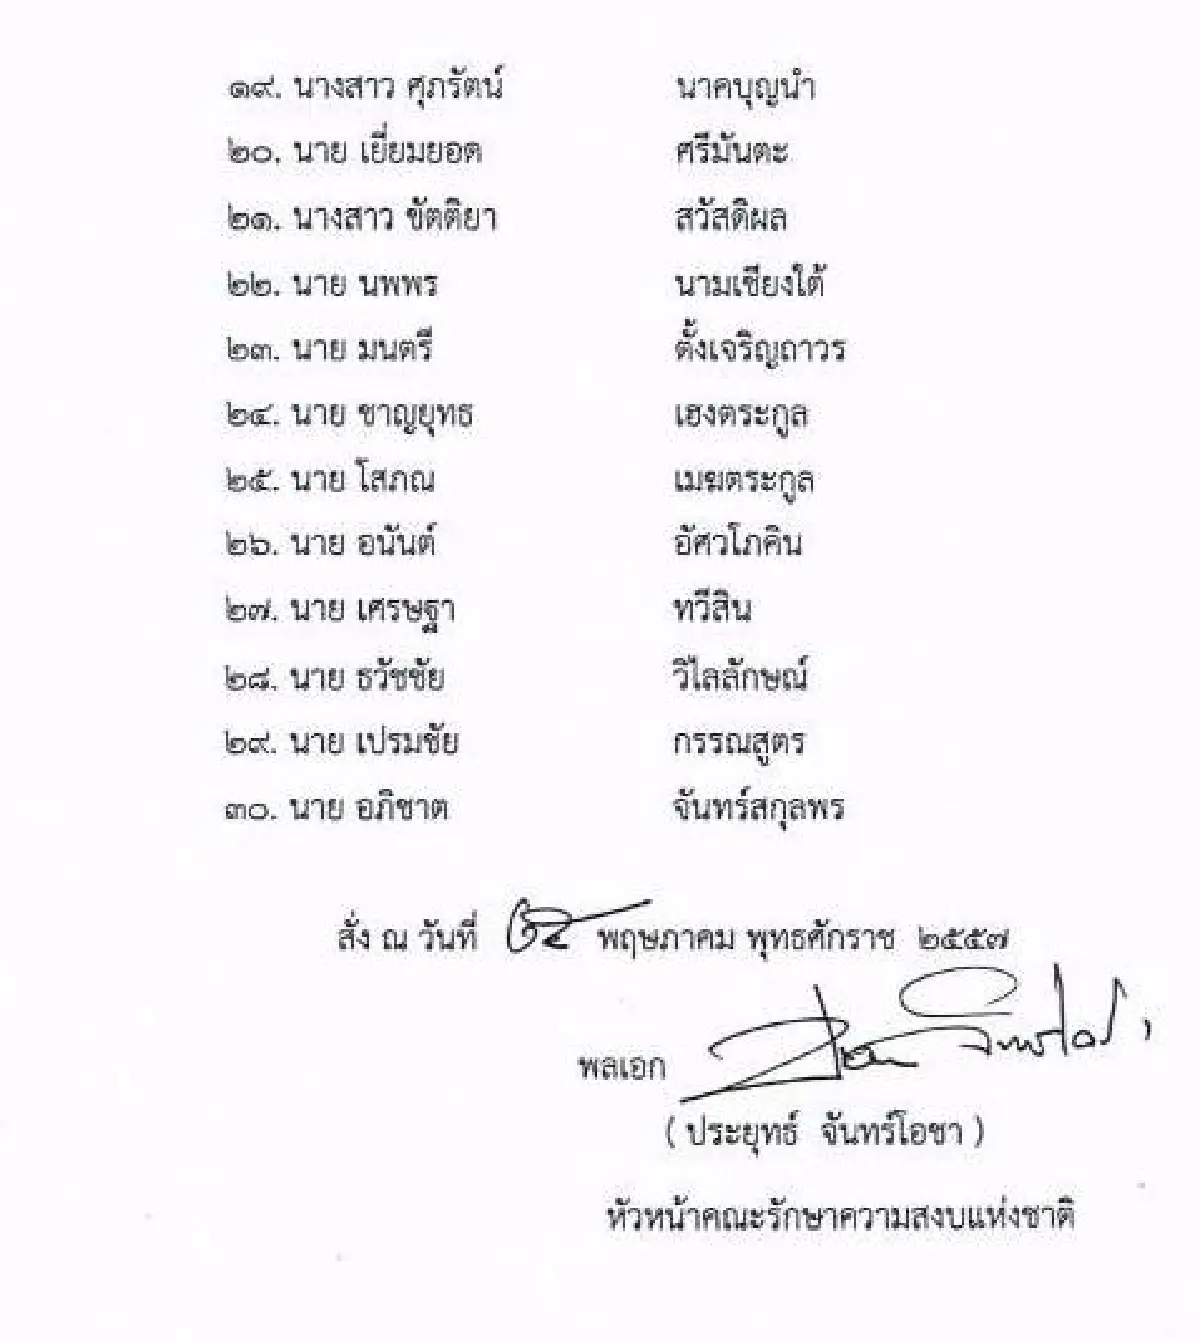 ๑๙. นางสาว ศุภรัตน์ นาคบุญนำ
๒๐. นาย เยี่ยมยอด ศรีมันตะ
๒๑. นางสาว ขัตติยา สวัสดิผล
๒๒. นาย นพพร นามเชียงใต้
๒๓. นาย มนตรี ตั้งเจริญถาวร
๒๔. นาย ชาญยุทธ เฮงตระกูล
๒๕. นาย โสภณ เมฆตระกูล
๒๖. นาย อนันต์ อัศวโภคิน
๒๗. นาย เศรษฐา ทวีสิน
๒๘. นาย ธวัชชัย วิไลลักษณ์
๒๙. นาย เปรมชัย กรรณสูตร
๓๐. นาย อภิชาต จันทร์สกุลพร
สั่ง ณ วันที่ พฤษภาคม พุทธศักราช ๒๕๕๗
พลเอก
( ประยุทธ์ จันทร์โอชา )
หัวหน้าคณะรักษาความสงบแห่งชาติ